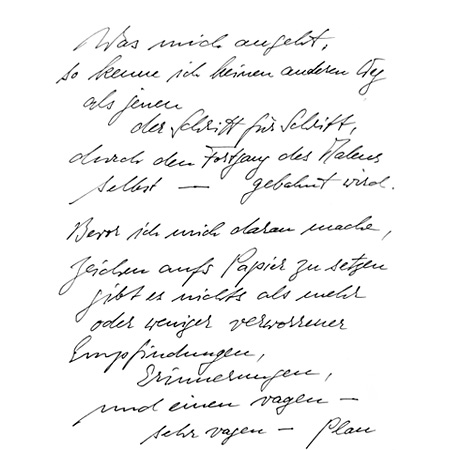 Was mich angeht,
so kenne ich keinen anderen Weg
als jenen
der Schritt für Schritt,
durch den Fortgang des Malens
selbst — gebahnt wird.
Bevor ich mich daran mache,
Zeichen aufs Papier zu setzen
gibt es nichts als mehr
oder weniger verworrener
Empfindungen,
Erinnerungen,
und einen vagen —
sehr vagen — Plan